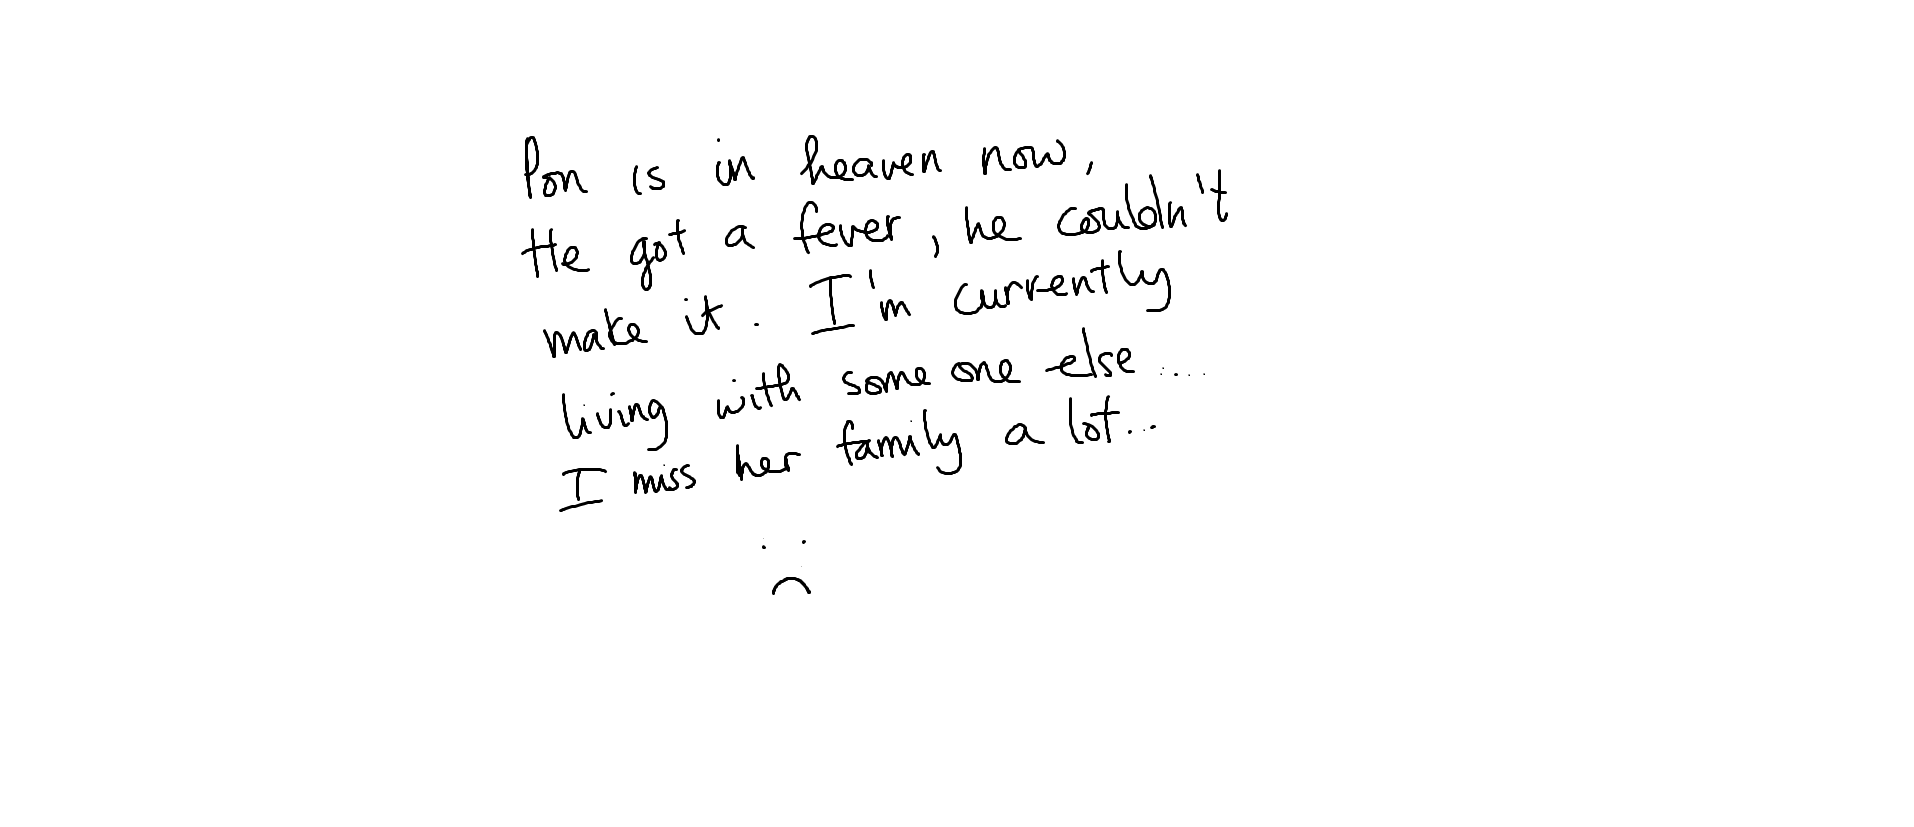 Pon is in heaven now,
He got a fever, he couldn't
make it. I'm currently
living with some one else ....
I miss her family a lot...